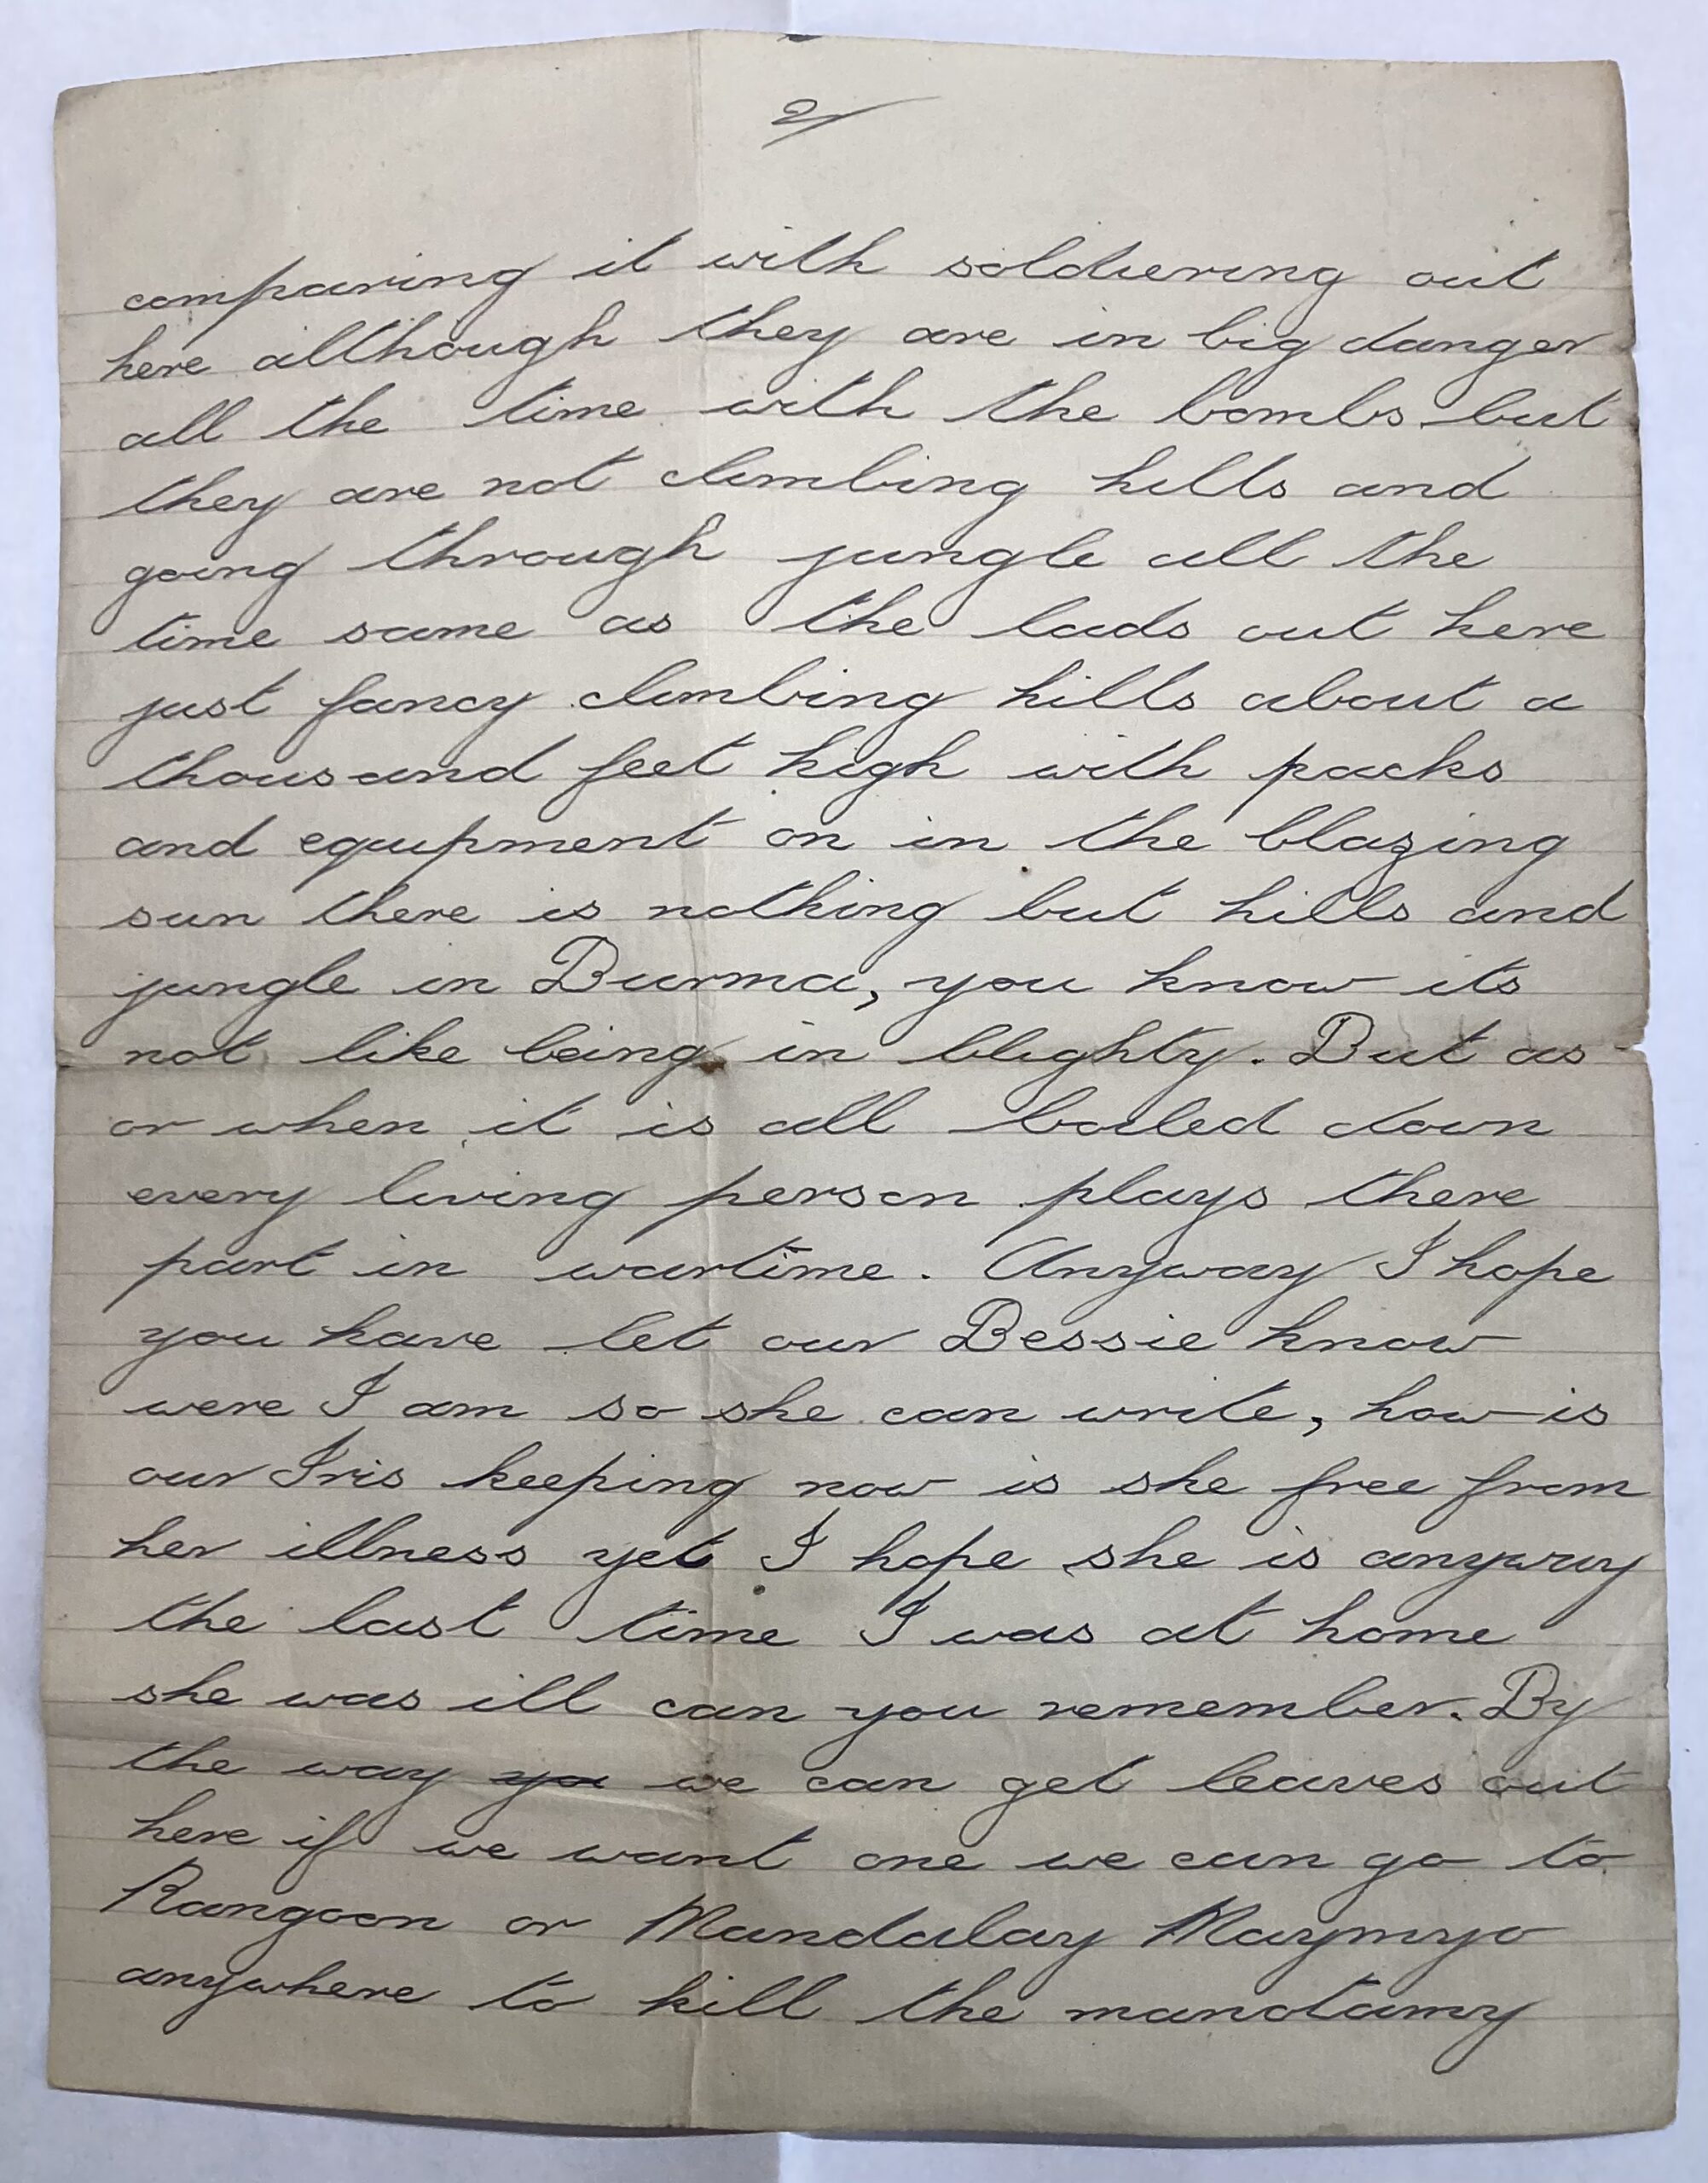 2/
comparing it with soldiering out
here although they are in big danger
all the time with the bombs but
they are not climbing hills and
going through jungle all the
time same as the lads out here
just fancy climbing hills about a
thousand feet high with packs
and equipment on in the blazing
sun there is nothing but hills and
jungle in Burma, you know its
not like being in blighty. But as
or when it is all boiled down
every living person plays there
part in wartime. Anyway I hope
you have let our Bessie know
were I am so she can write, how is
our Iris keeping now is she free from
her illness yet I hope she is anyway
the last time I was at home
she was ill can you remember. By
the way you we can get leaves out
here if we want one we can go to
Rangoon or Mandalay Maymyo
anywhere to kill the manotamy